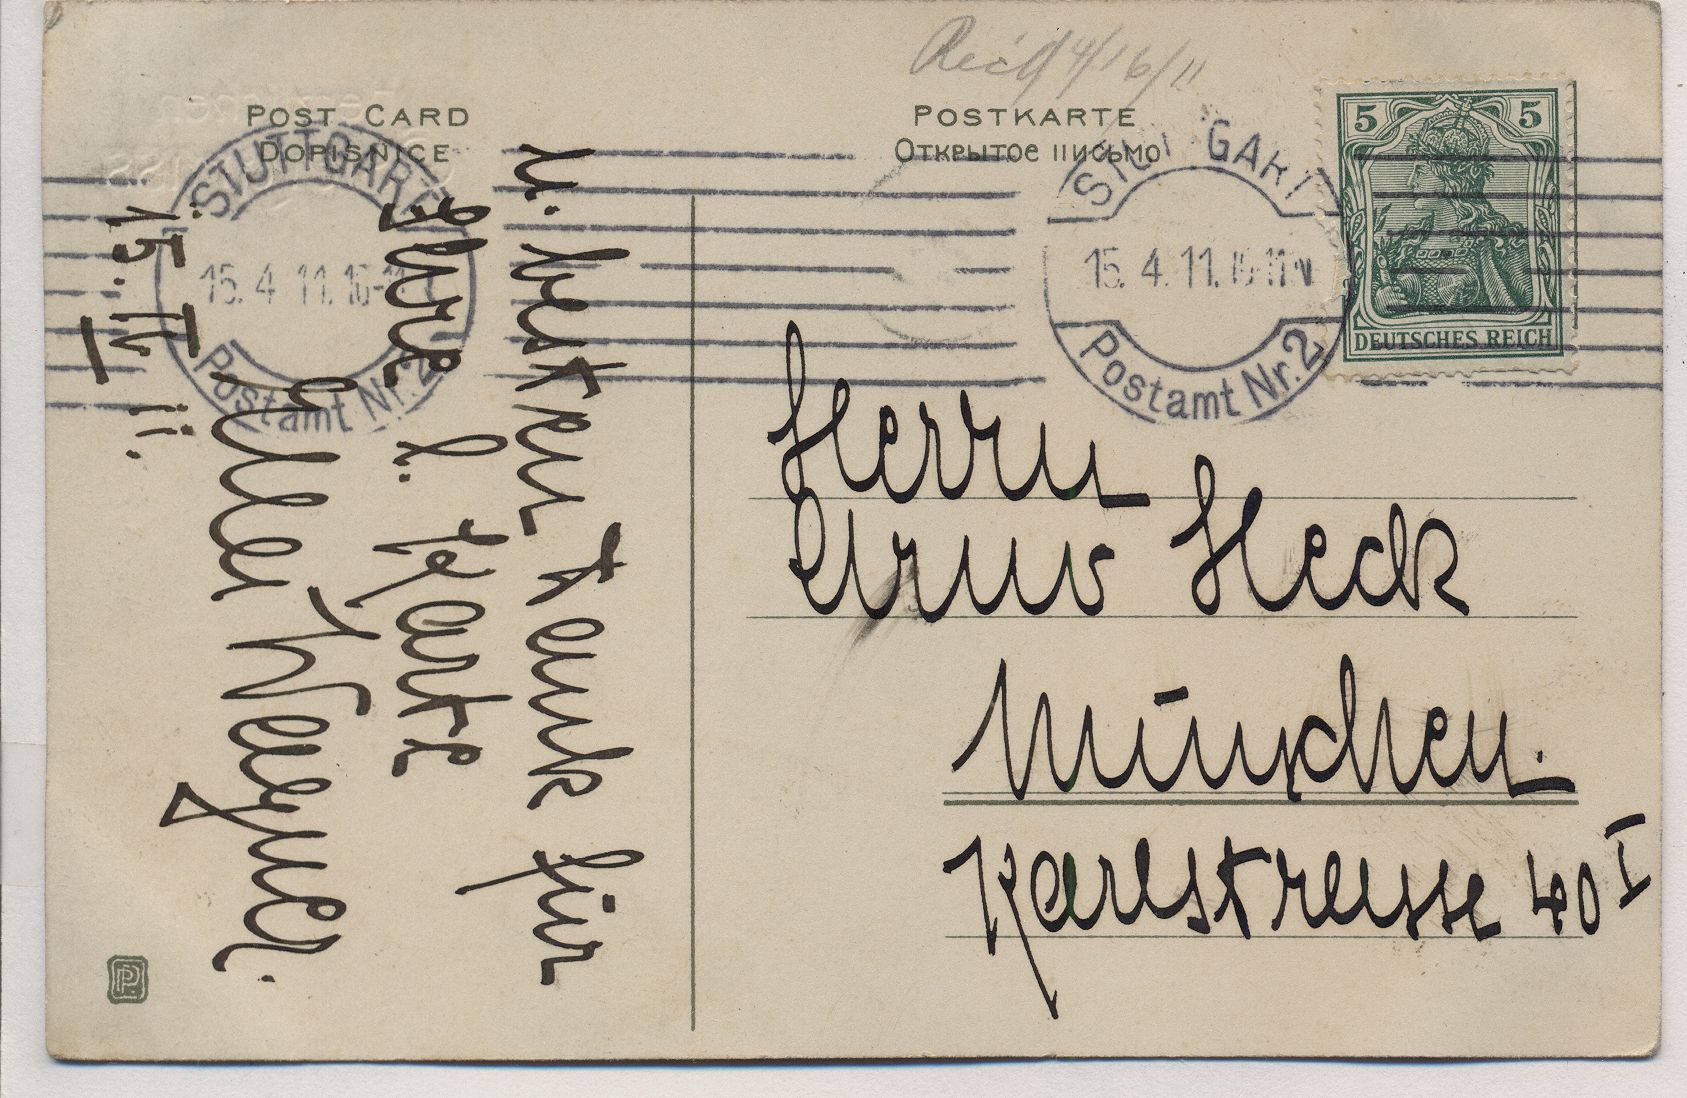 Rec'd 4/16/11
POST CARD
DOPISNICE
POSTKARTE
Открытое письмо
5 5
DEUTSCHES REICH
STUTTGART
15.4.11.10-11 N
Postamt Nr. 2
STUTTGART
15.4.11.10-11 N
Postamt Nr. 2
u. besten Dank für
Ihre l. Karte
Wegner.
15. IV. 11.
Herrn
Arno Heck
München.
Karlstrasse 40 I